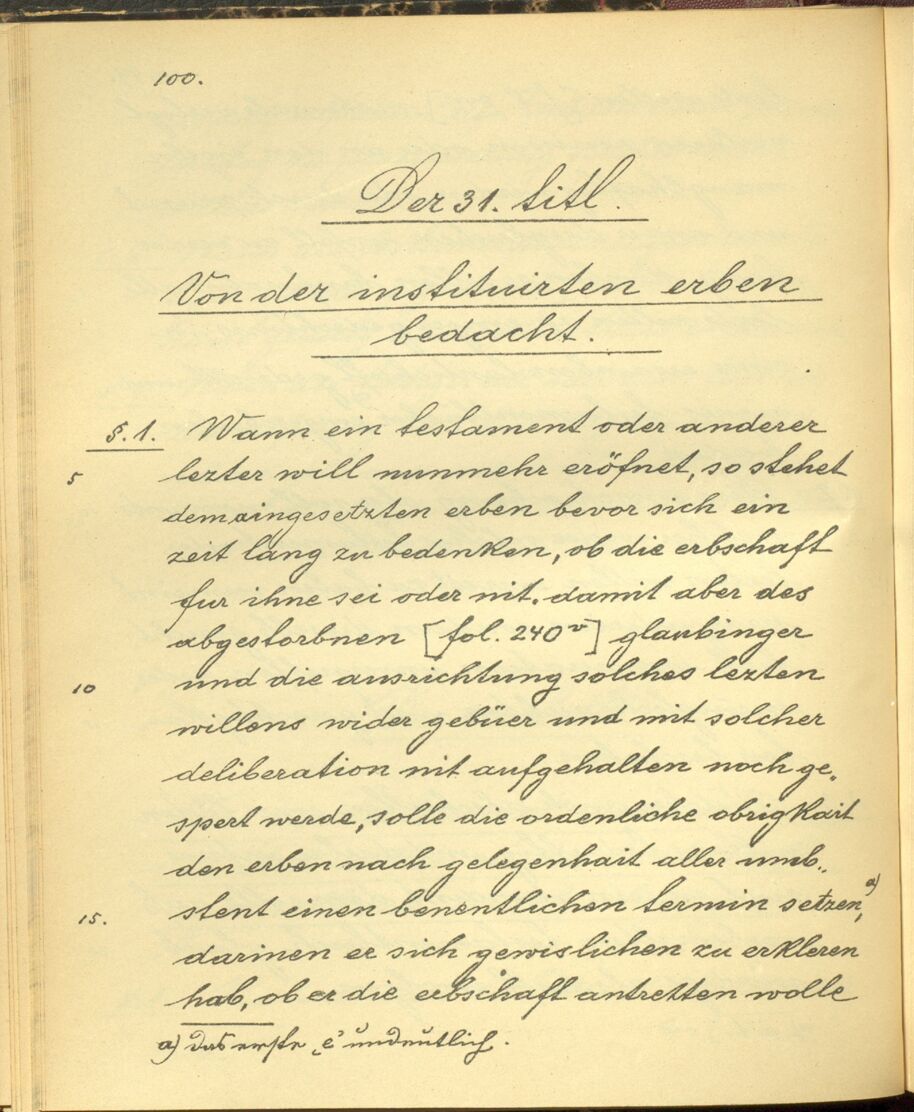 100.
Der 31. titl.
Von der instituirten erben
bedacht.
§.1. Wann ein testament oder anderer
5 lezter will nunmehr eröfnet, so stehet
dem aingesetzten erben bevor sich ein
zeit lang zu bedenken, ob die erbschaft
fur ihne sei oder nit. damit aber des
abgestorbnen [fol. 240v] glaubinger
10 und die ausrichtung solches lezten
willens wider gebüer und mit solcher
deliberation nit aufgehalten noch ge„
spert werde, solle die ordenliche obrigkait
den erben nach gelegenhait aller umb„
15. stent einen benentlichen termin setzen,a)
darinen er sich gewislichen zu erkleren
hab, ob er die erbschaft antretten wolle
a) das erste „e“ undeutlich.